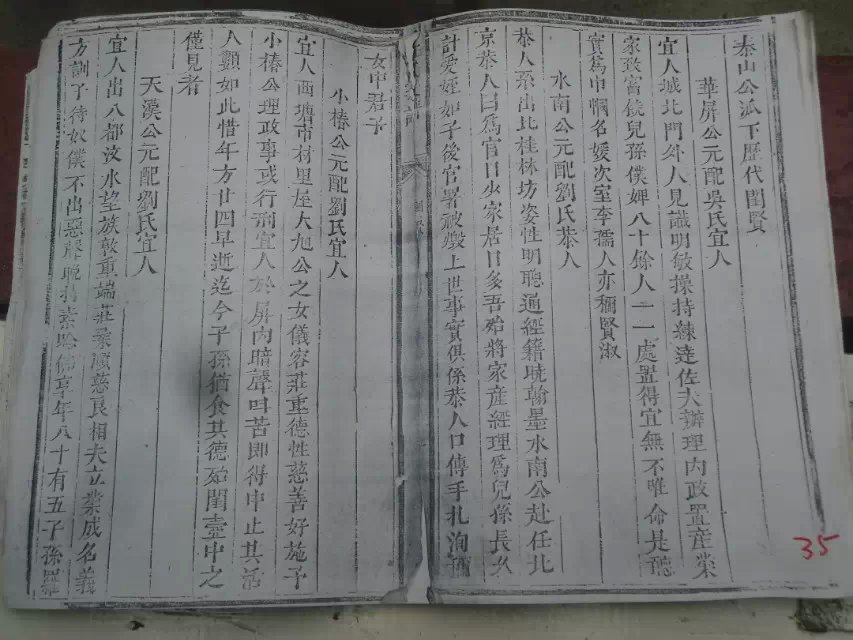 泰山公派下歷代閨賢
華屏公元配吳氏宜人
宜人城北門外人見識明敏操持練達佐夫辦理內政置產業
家致富饒兒孫僕婢八十餘人一一處置得宜無不唯命是聽
實為巾幗名媛次室李孺人亦稱賢淑
水南公元配劉氏恭人
恭人系出北桂林坊姿性明聰通經籍曉翰墨水南公赴任北
京恭人曰為官日少家居日多吾殆將家產經理為兒孫長久
計愛姪如子後官署被燬上世事實俱係恭人口傳手札洵稱
女中君子
小椿公元配劉氏宜人
宜人西塘市材里屋大旭公之女儀容莊重德性慈善好施予
小椿公理政事或行刑宜人於屏內暗聲叫苦即得中止其活
人顴如此惜年方廿四早逝迄今子孫猶食其德殆閨壼中之
僅見者
天溪公元配劉氏宜人
宜人出八都汝水望族敦重端莊柔順慈良相夫立業成名義
方訓子待奴僕不出惡聲晚持素唸佛享年八十有五子孫羅
35